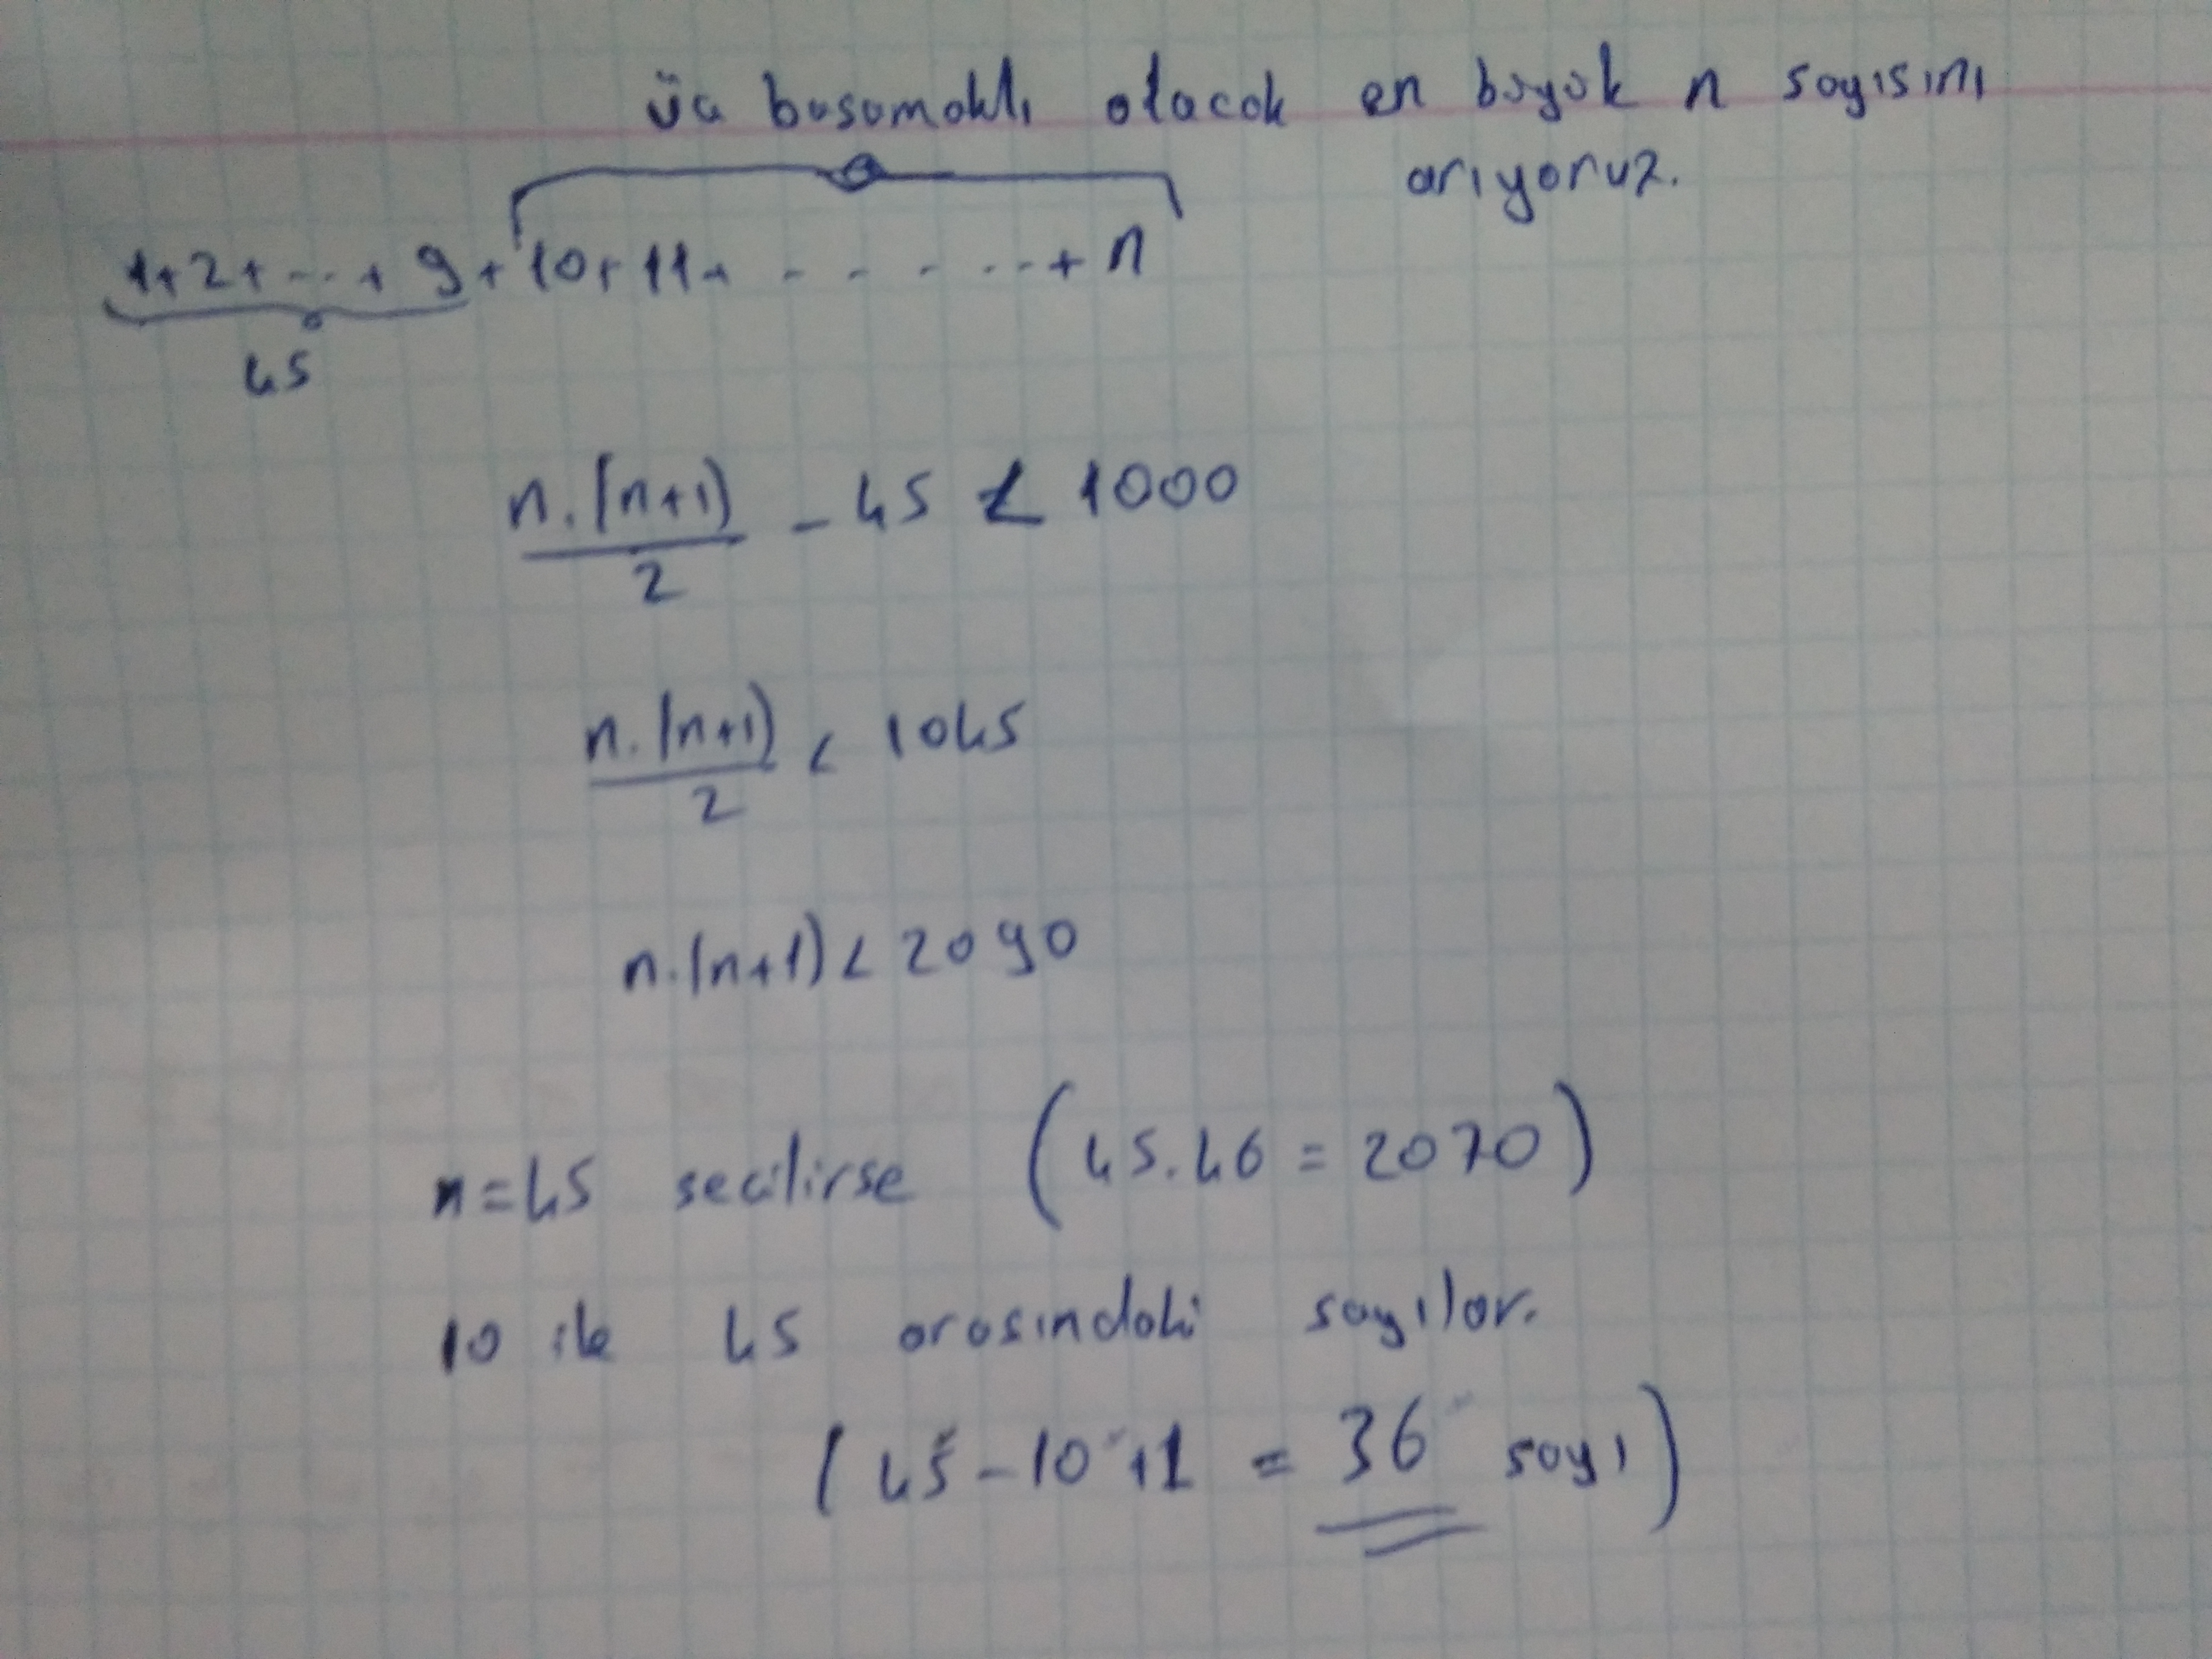 üç basamaklı olacak en büyük n sayısını
arıyoruz.
1+2+...+9+10+11+ - - - ...+n
45
n.(n+1)/2 - 45 < 1000
n.(n+1)/2 < 1045
n.(n+1) < 2090
n=45 seçilirse (45.46 = 2070)
10 ile 45 arasındaki sayılar.
(45-10+1 = 36 sayı)